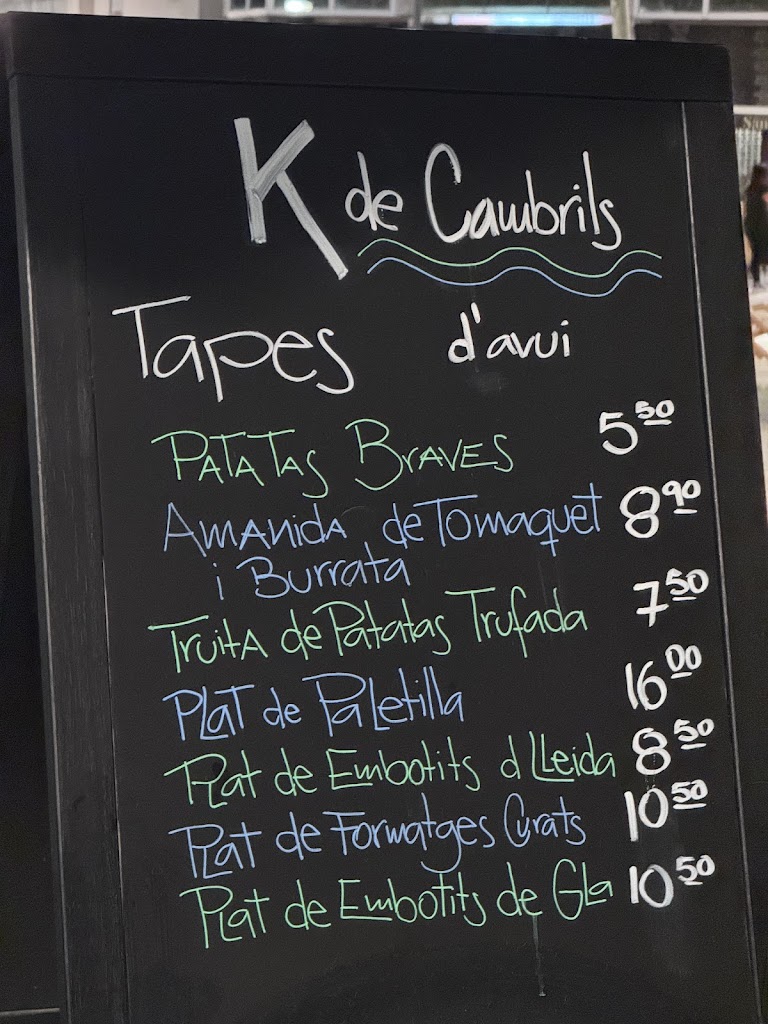 K de Cambrils
Tapes d'avui
PATATAS BRAVES 5.50
AMANIDA de Tomaquet 8.90
i Burrata
TRUITA de Patatas Trufada 7.50
PLAT de Paletilla 16.00
Plat de Embotits d Lleida 8.50
Plat de Formatges Curats 10.50
Plat de Embotits de Gla 10.50